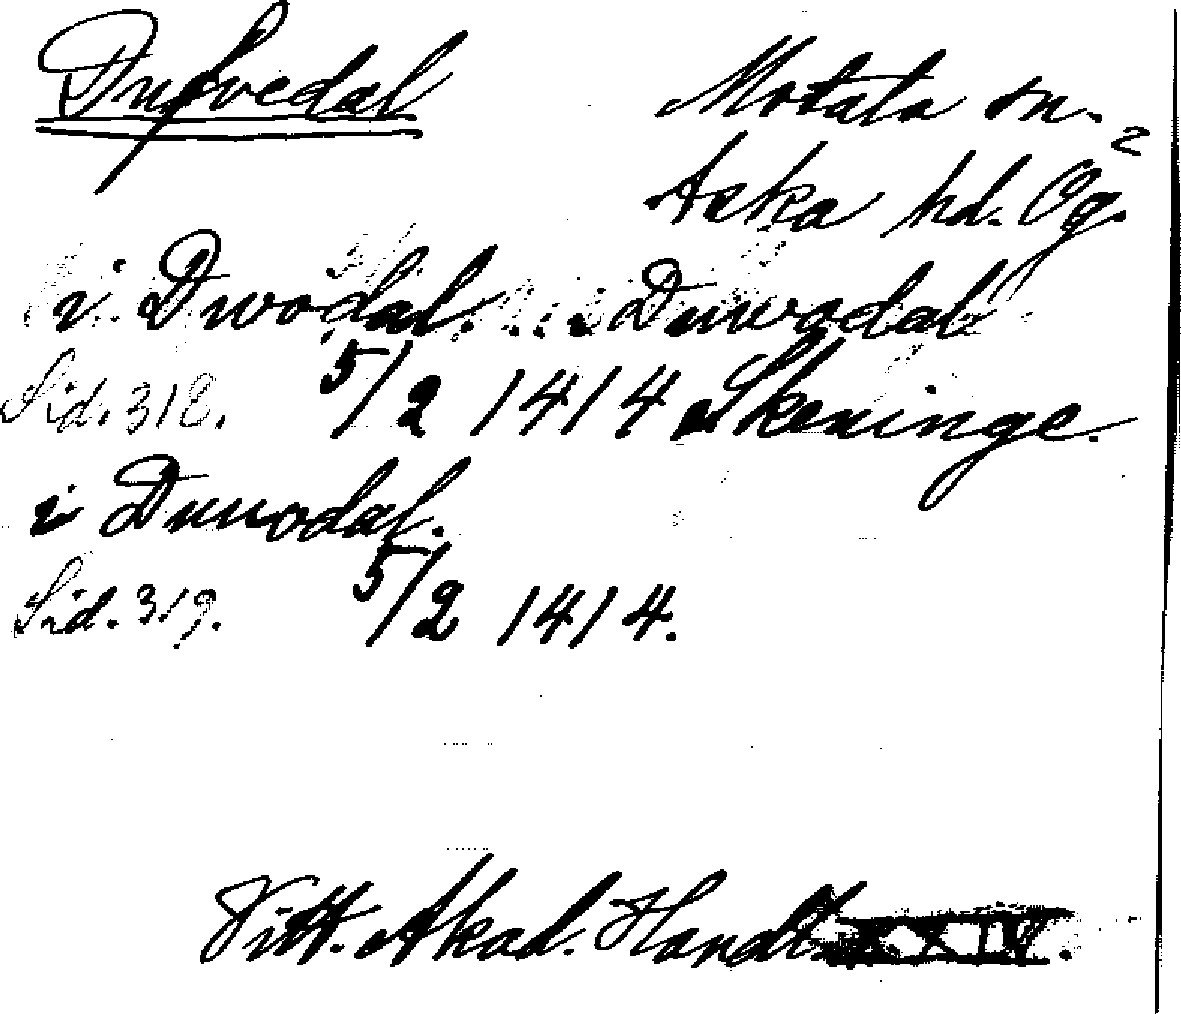 Dufvedal
Motala sn.
2
Aska hd. Ög.
i Dwodal. . . i Duwodal
Sid. 318. 5/2 1414 Skeninge.
i Duuodal.
Sid. 319. 5/2 1414.
Vitt. Akad. Handl. XXIV.